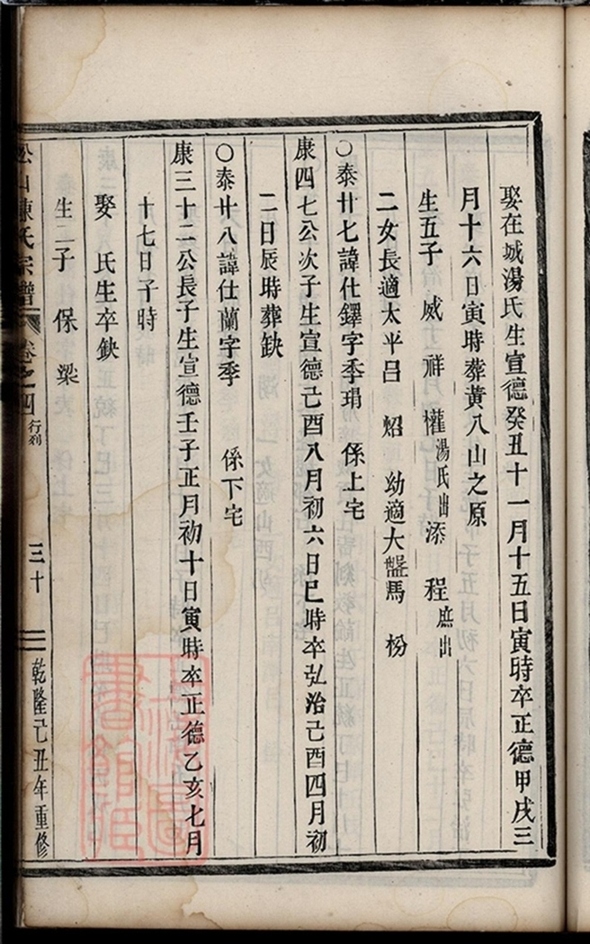 娶在城湯氏生宣德癸丑十一月十五日寅時卒正德甲戌三
月十六日寅時葬黃八山之原
生五子 威 祥 權湯氏出添 程庶出
二女長適太平呂 炤 幼適大盤馬 枌
○泰廿七諱仕鐸字季琄 係上宅
康四七公次子生宣德己酉八月初六日巳時卒弘治己酉四月初
二日辰時葬缺
○泰廿八諱仕蘭字季 係下宅
康三十二公長子生宣德壬子正月初十日寅時卒正德乙亥七月
十七日子時
娶 氏生卒缺
生二子 保 梁
山陳氏宗譜 卷之四 行列 三十 乾隆己丑年重修